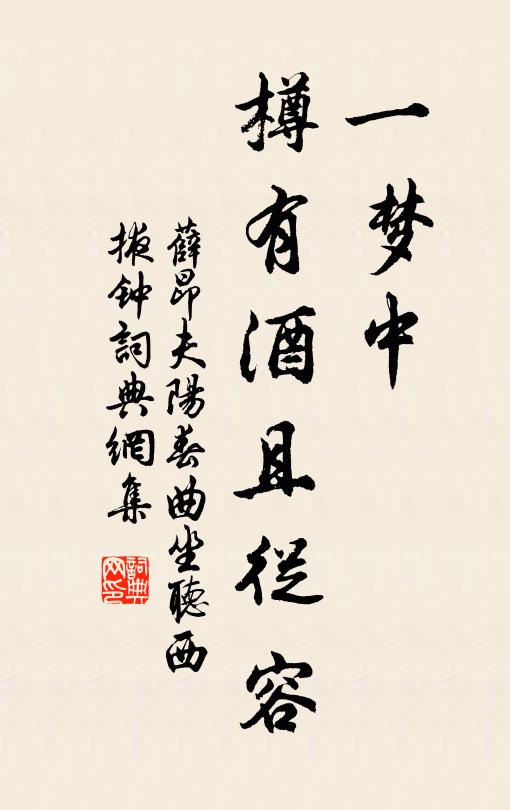 一梦中
樽有酒且從容
薛昂夫陽春曲坐聽西
掖钟詞典網集
詞典
网印